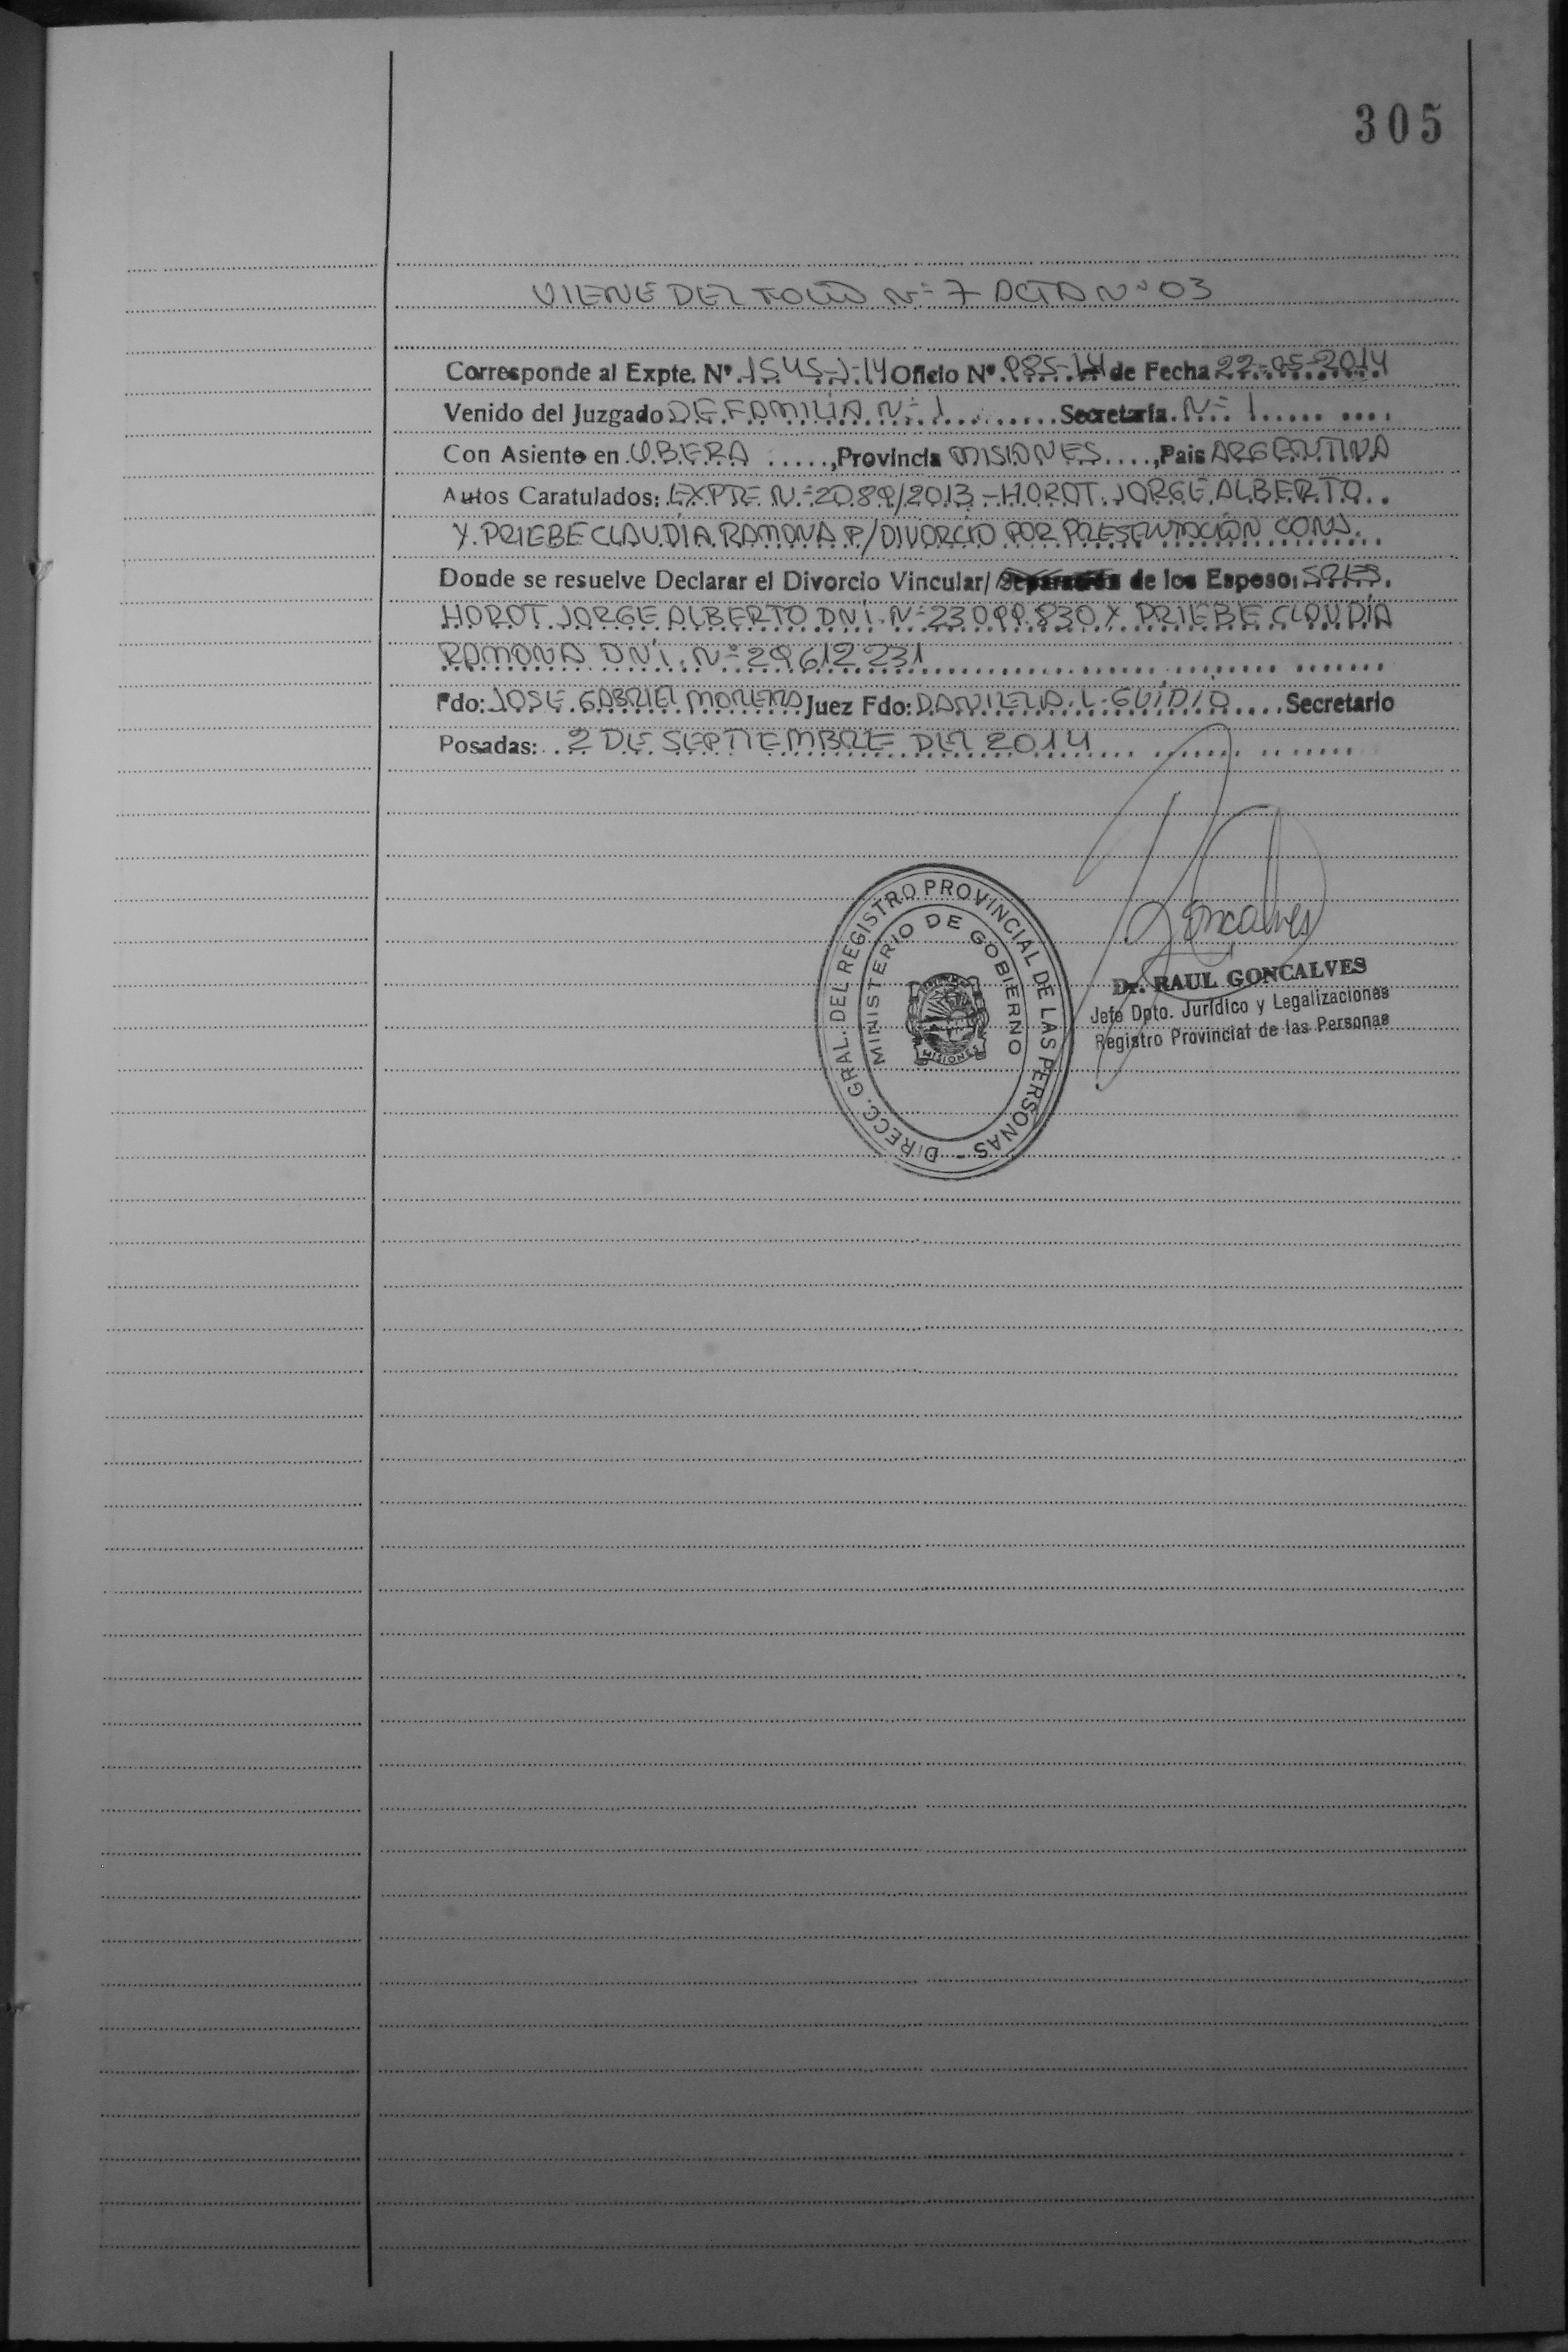 305
VIENE DEL FOLIO N= 7 ACTA Nº 03
Corresponde al Expte. Nº. 1545-J-14 Oficio Nº. 985-14 de Fecha 22-05-2014
Venido del Juzgado DE FAMILIA N= 1 Secretaría. N= 1
Con Asiento en OBERA, Provincia MISIONES, Pais ARGENTINA
Autos Caratulados: EXPTE N= 2089/2013 - HOROT JORGE ALBERTO
Y PRIEBE CLAUDIA RAMONA P/ DIVORCIO POR PRESENTACIÓN CONJ.
Donde se resuelve Declarar el Divorcio Vincular/ Separación de los Esposo: SRES.
HOROT JORGE ALBERTO DNI. N= 23099.830 Y PRIEBE CLAUDÍA
RAMONA DNÍ. Nº 29612231
Fdo: JOSE GABRIEL MOREIRA Juez Fdo: DANIELA L. GUIDIÓ Secretario
Posadas: 2 DE SEPTIEMBRE DEL 2014
DIRECC. GRAL. DEL REGISTRO PROVINCIAL DE LAS PERSONAS -
MINISTERIO DE GOBIERNO
MISIONES
Goncalves
Dr. RAUL GONCALVES
Jefe Dpto. Jurídico y Legalizaciones
Registro Provincial de las Personas